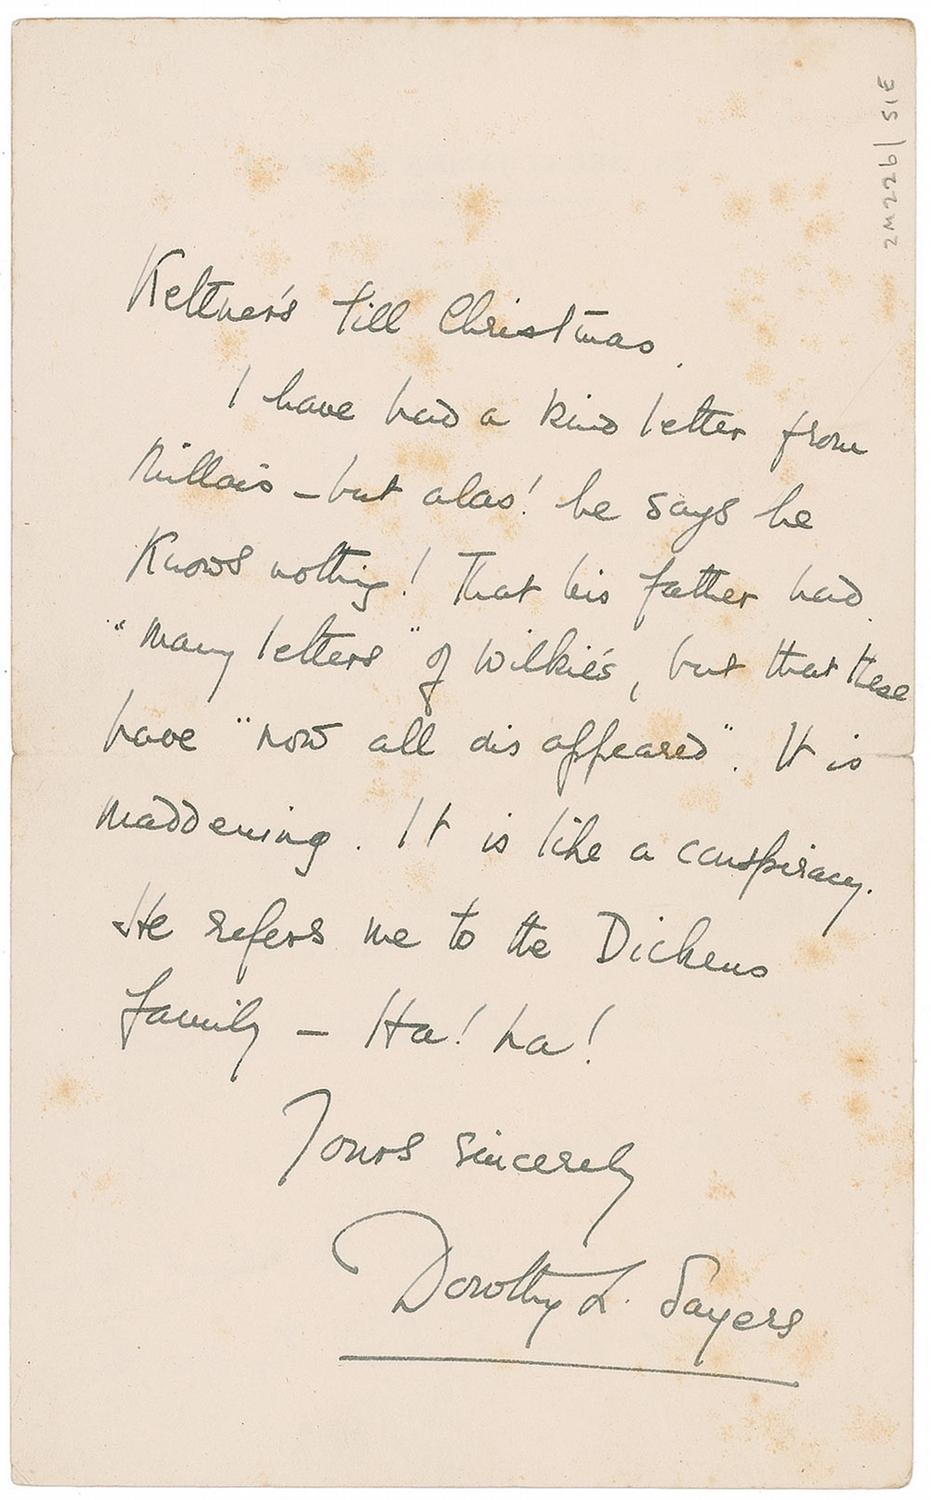 2M226/ S1E
Kettner's till Christmas.
I have had a kind letter from
Millais – but alas! he says he
knows nothing! That his father had
"many letters" of Wilkie's, but that these
have "now all disappeared". It is
maddening. It is like a conspiracy.
He refers me to the Dickens
family – Ha! ha!
Yours sincerely
Dorothy L. Sayers